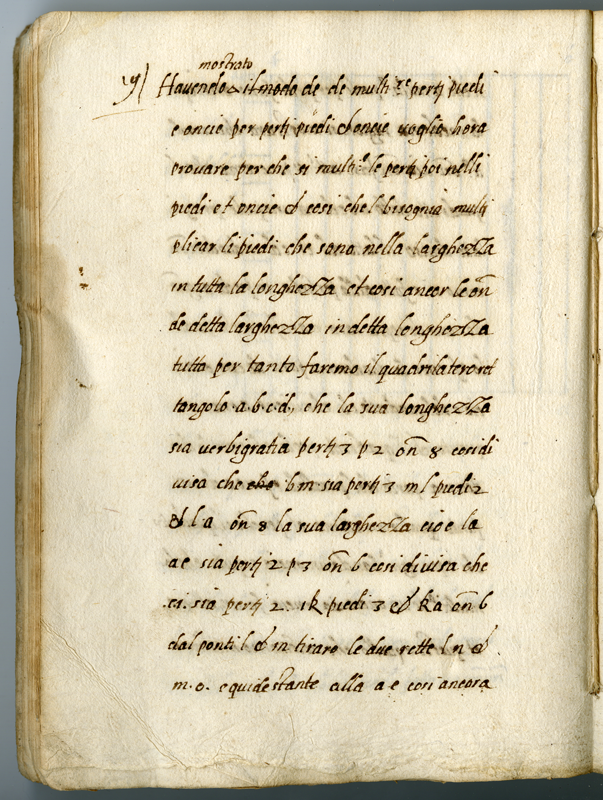 mostrato
Havendo il modo de de multi.re pertj piedi
e oncie per pertj piedi & oncie voglio hora
provare per che si multi.o le pertj poi nelli
piedi et oncie & cosi che'l bisognia multi
plicar li piedi che sono nella larghezza
in tutta la longhezza et cosi ancor le on̄
de detta larghezza in detta longhezza
tutta per tanto faremo il quadrilatero ret
tangolo a.b.c.d, che la sua longhezza
sia verbigratia pertj 3 p 2 on̄ 8 cosi di
visa che che b m sia pertj 3 m l piedi 2
& l a on̄ 8 la sua larghezza cioe la
a e sia pertj 2 p 3 on̄ 6 cosi divisa che
.ci. sia pertj 2. ik piedi 3 & k a on̄ 6
dal ponti l & m tiraro le due rette l n &
m.o. equidestante alla a e cosi ancora